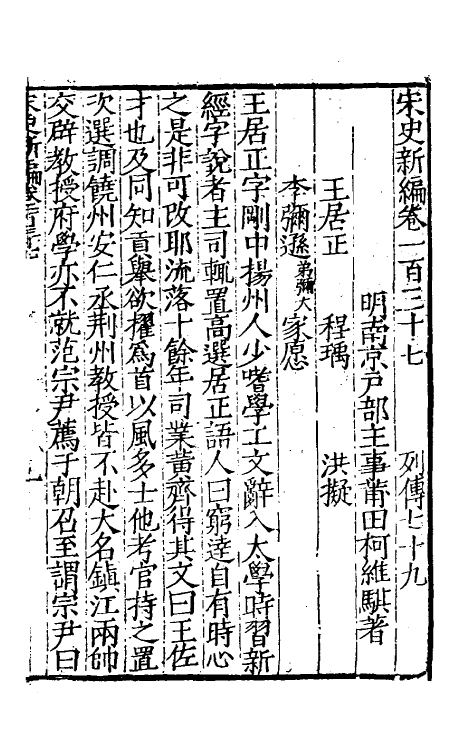 宋史新編卷一百三十七　列傳七十九
明南京戶部主事莆田柯維騏著
王居正　程瑀　洪擬
李彌遜弟彌大　家愿
王居正字剛中揚州人少嗜學工文辭入太學時習新
經字說者主司輒置高選居正語人曰窮達自有時心
之是非可改耶流落十餘年司業黃齊得其文曰王佐
才也及同知貢舉欲擢為首以風多士他考官持之置
次選調饒州安仁丞荆州教授皆不赴大名鎮江兩帥
交辟教授府學亦不就范宗尹薦于朝召至謂宗尹曰
宋史新編卷一百三十七